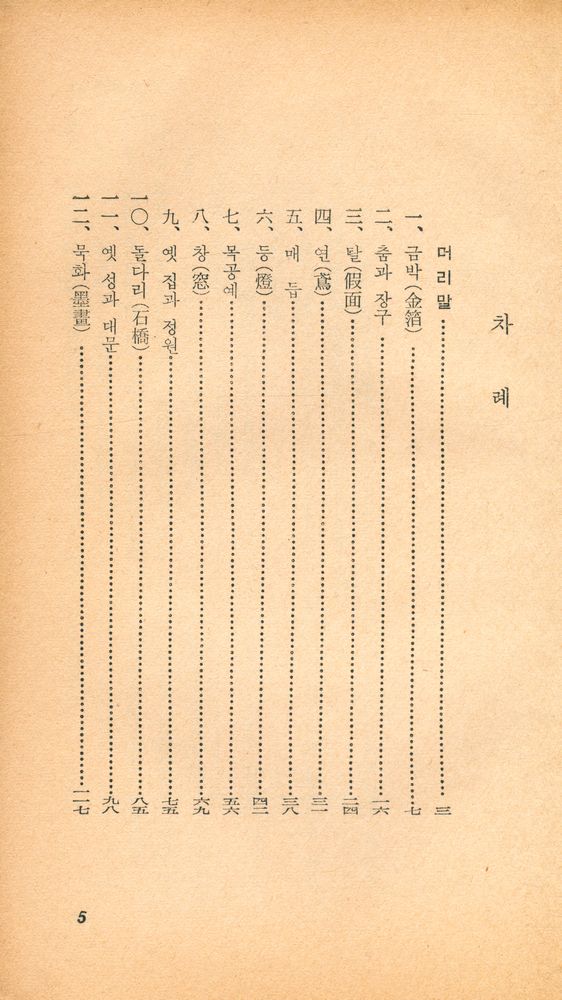 차 례
머리말……………………三
一、금박(金箔)……………………七
二、춤과 장구……………………一六
三、탈(假面)……………………二四
四、연(鳶)……………………三一
五、매 듭……………………三八
六、등(燈)……………………四二
七、목공예……………………五六
八、창(窓)……………………六九
九、옛 집과 정원……………………七五
一〇、돌다리(石橋)……………………八五
一一、옛 성과 대문……………………九八
一二、묵화(墨畫)……………………一一七
5